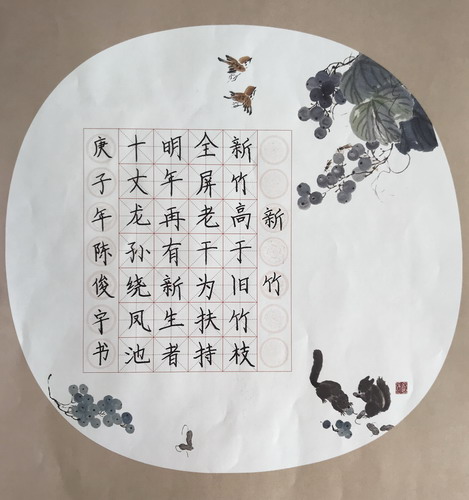 新竹
新竹高于旧竹枝
全屏老干为扶持
明年再有新生者
十丈龙孙绕凤池
庚子年陈俊宇书